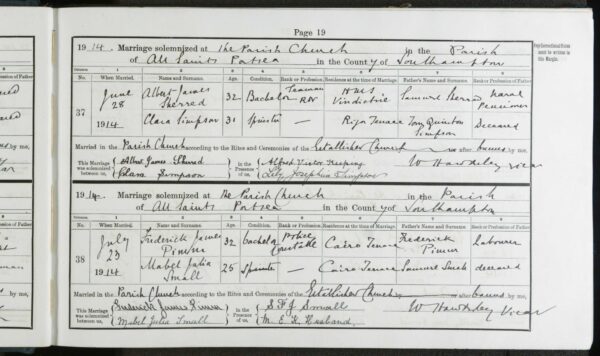 Page 19
1914. Marriage solemnized at The Parish Church in the Parish
of All Saints Portsea in the County of Southampton
No. When Married. Name and Surname. Age. Condition. Rank or Profession. Residence at the time of Marriage. Father's Name and Surname. Rank or Profession of Father.
37 June 28 1914 Albert James Sherred 32 Bachelor Seaman RN HMS Vindictive Samuel Sherred Naval Pensioner
Clara Simpson 31 Spinster — Terrace Tom Simpson Deceased
Married in the Parish Church according to the Rites and Ceremonies of the Established Church or after banns by me,
This Marriage was solemnized between us, Albert James Sherred Clara Simpson in the Presence of us, Alfred Victor Keeping Lily Josephine Simpson W Hawksley Vicar
1914. Marriage solemnized at The Parish Church in the Parish
of All Saints Portsea in the County of Southampton
No. When Married. Name and Surname. Age. Condition. Rank or Profession. Residence at the time of Marriage. Father's Name and Surname. Rank or Profession of Father.
38 July 23 1914 Frederick James Pimm 32 Bachelor Police Constable Cairo Terrace Frederick Pimm Labourer
Mabel Julia Small 25 Spinster — Cairo Terrace Samuel deceased
Married in the Parish Church according to the Rites and Ceremonies of the Established Church or after banns by me,
This Marriage was solemnized between us, Frederick James Pimm Mabel Julia Small in the Presence of us, S F J Small M. E. Husband W Hawksley Vicar